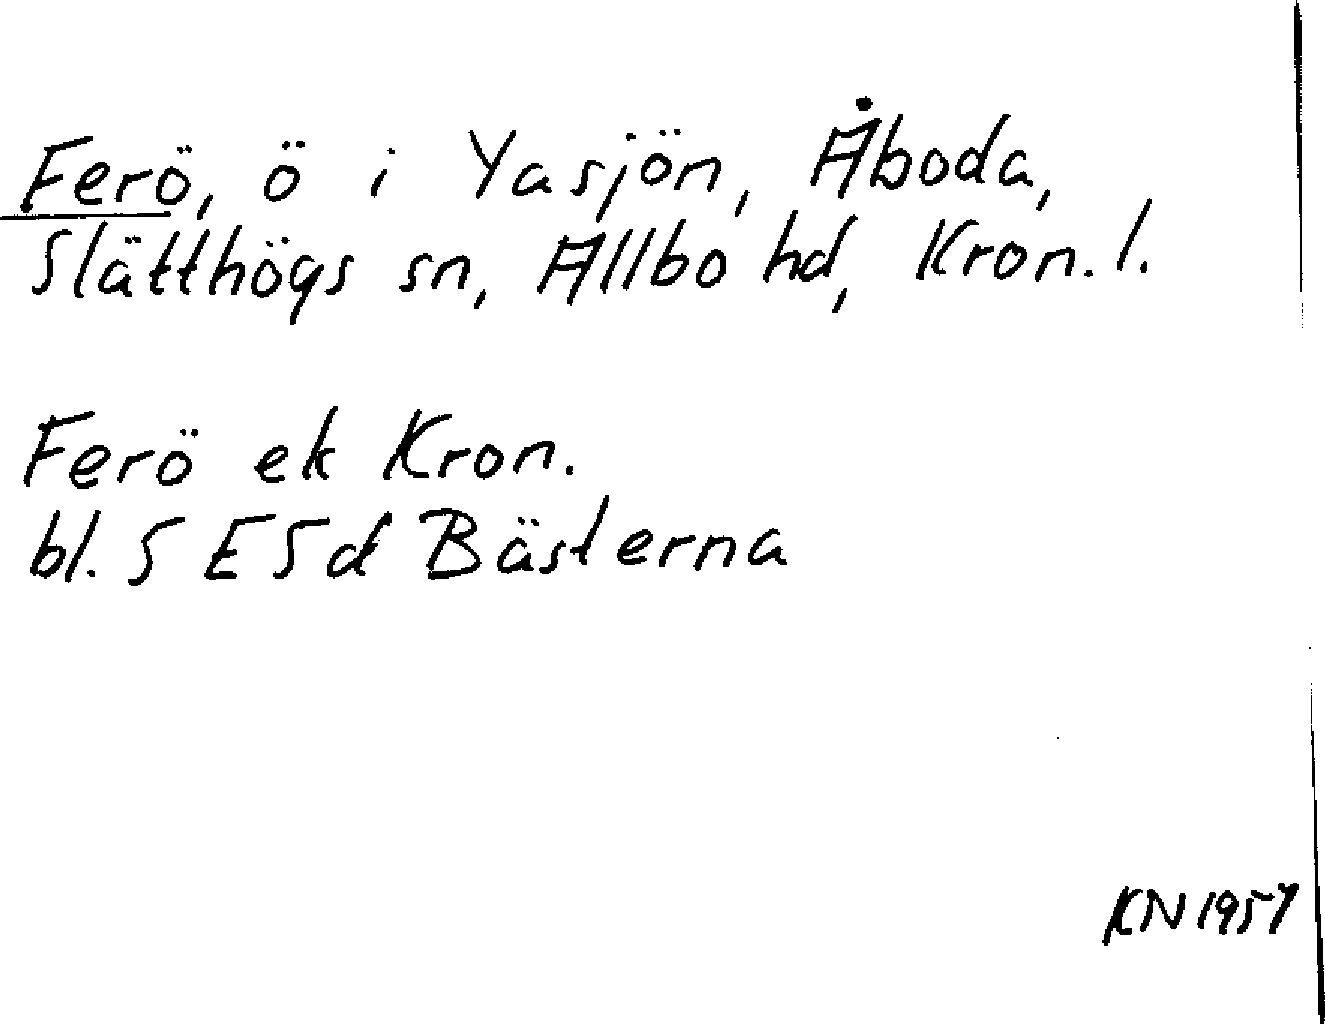 Ferö, ö i Yasjön, Åboda,
Slätthögs sn, Allbo hd, Kron. l.
Ferö ek Kron.
bl. 5 E5d Bästerna
KN 1957